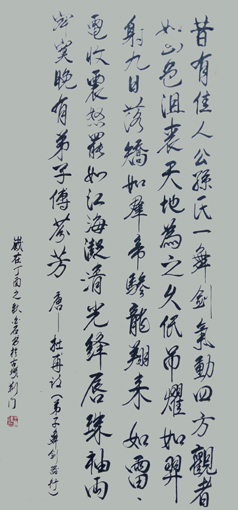 昔有佳人公孫氏一舞劍氣動四方觀者
如山色沮喪天地為之久低昂㸌如羿
射九日落矯如羣帝驂龍翔来如雷
電收震怒罷如江海凝清光絳唇珠袖兩
寂寞晚有弟子傳芬芳 唐 杜甫詩(弟子舞劍器行)
歲在丁酉之秋